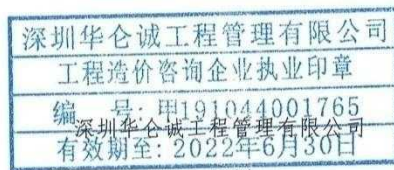 深圳华仑诚工程管理有限公司
工程造价咨询企业执业印章
编 号:甲191044001765
深圳华仑诚工程管理有限公司
有效期至:2022年6月30日